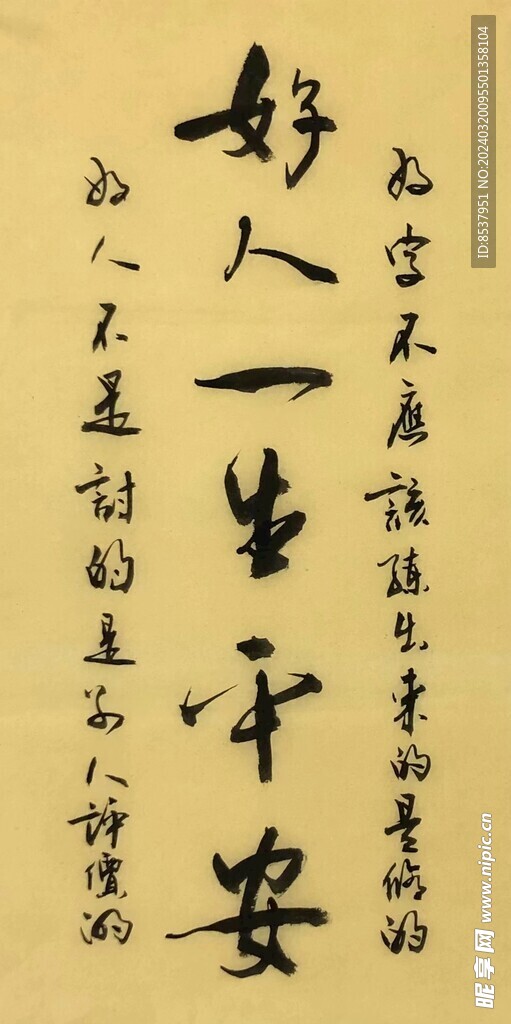 好字不應該練出來的是修的
好人一生平安
好人不是討的是別人評價的
ID:8537951 NO:20240320095501358104
昵享网 www.nipic.cn